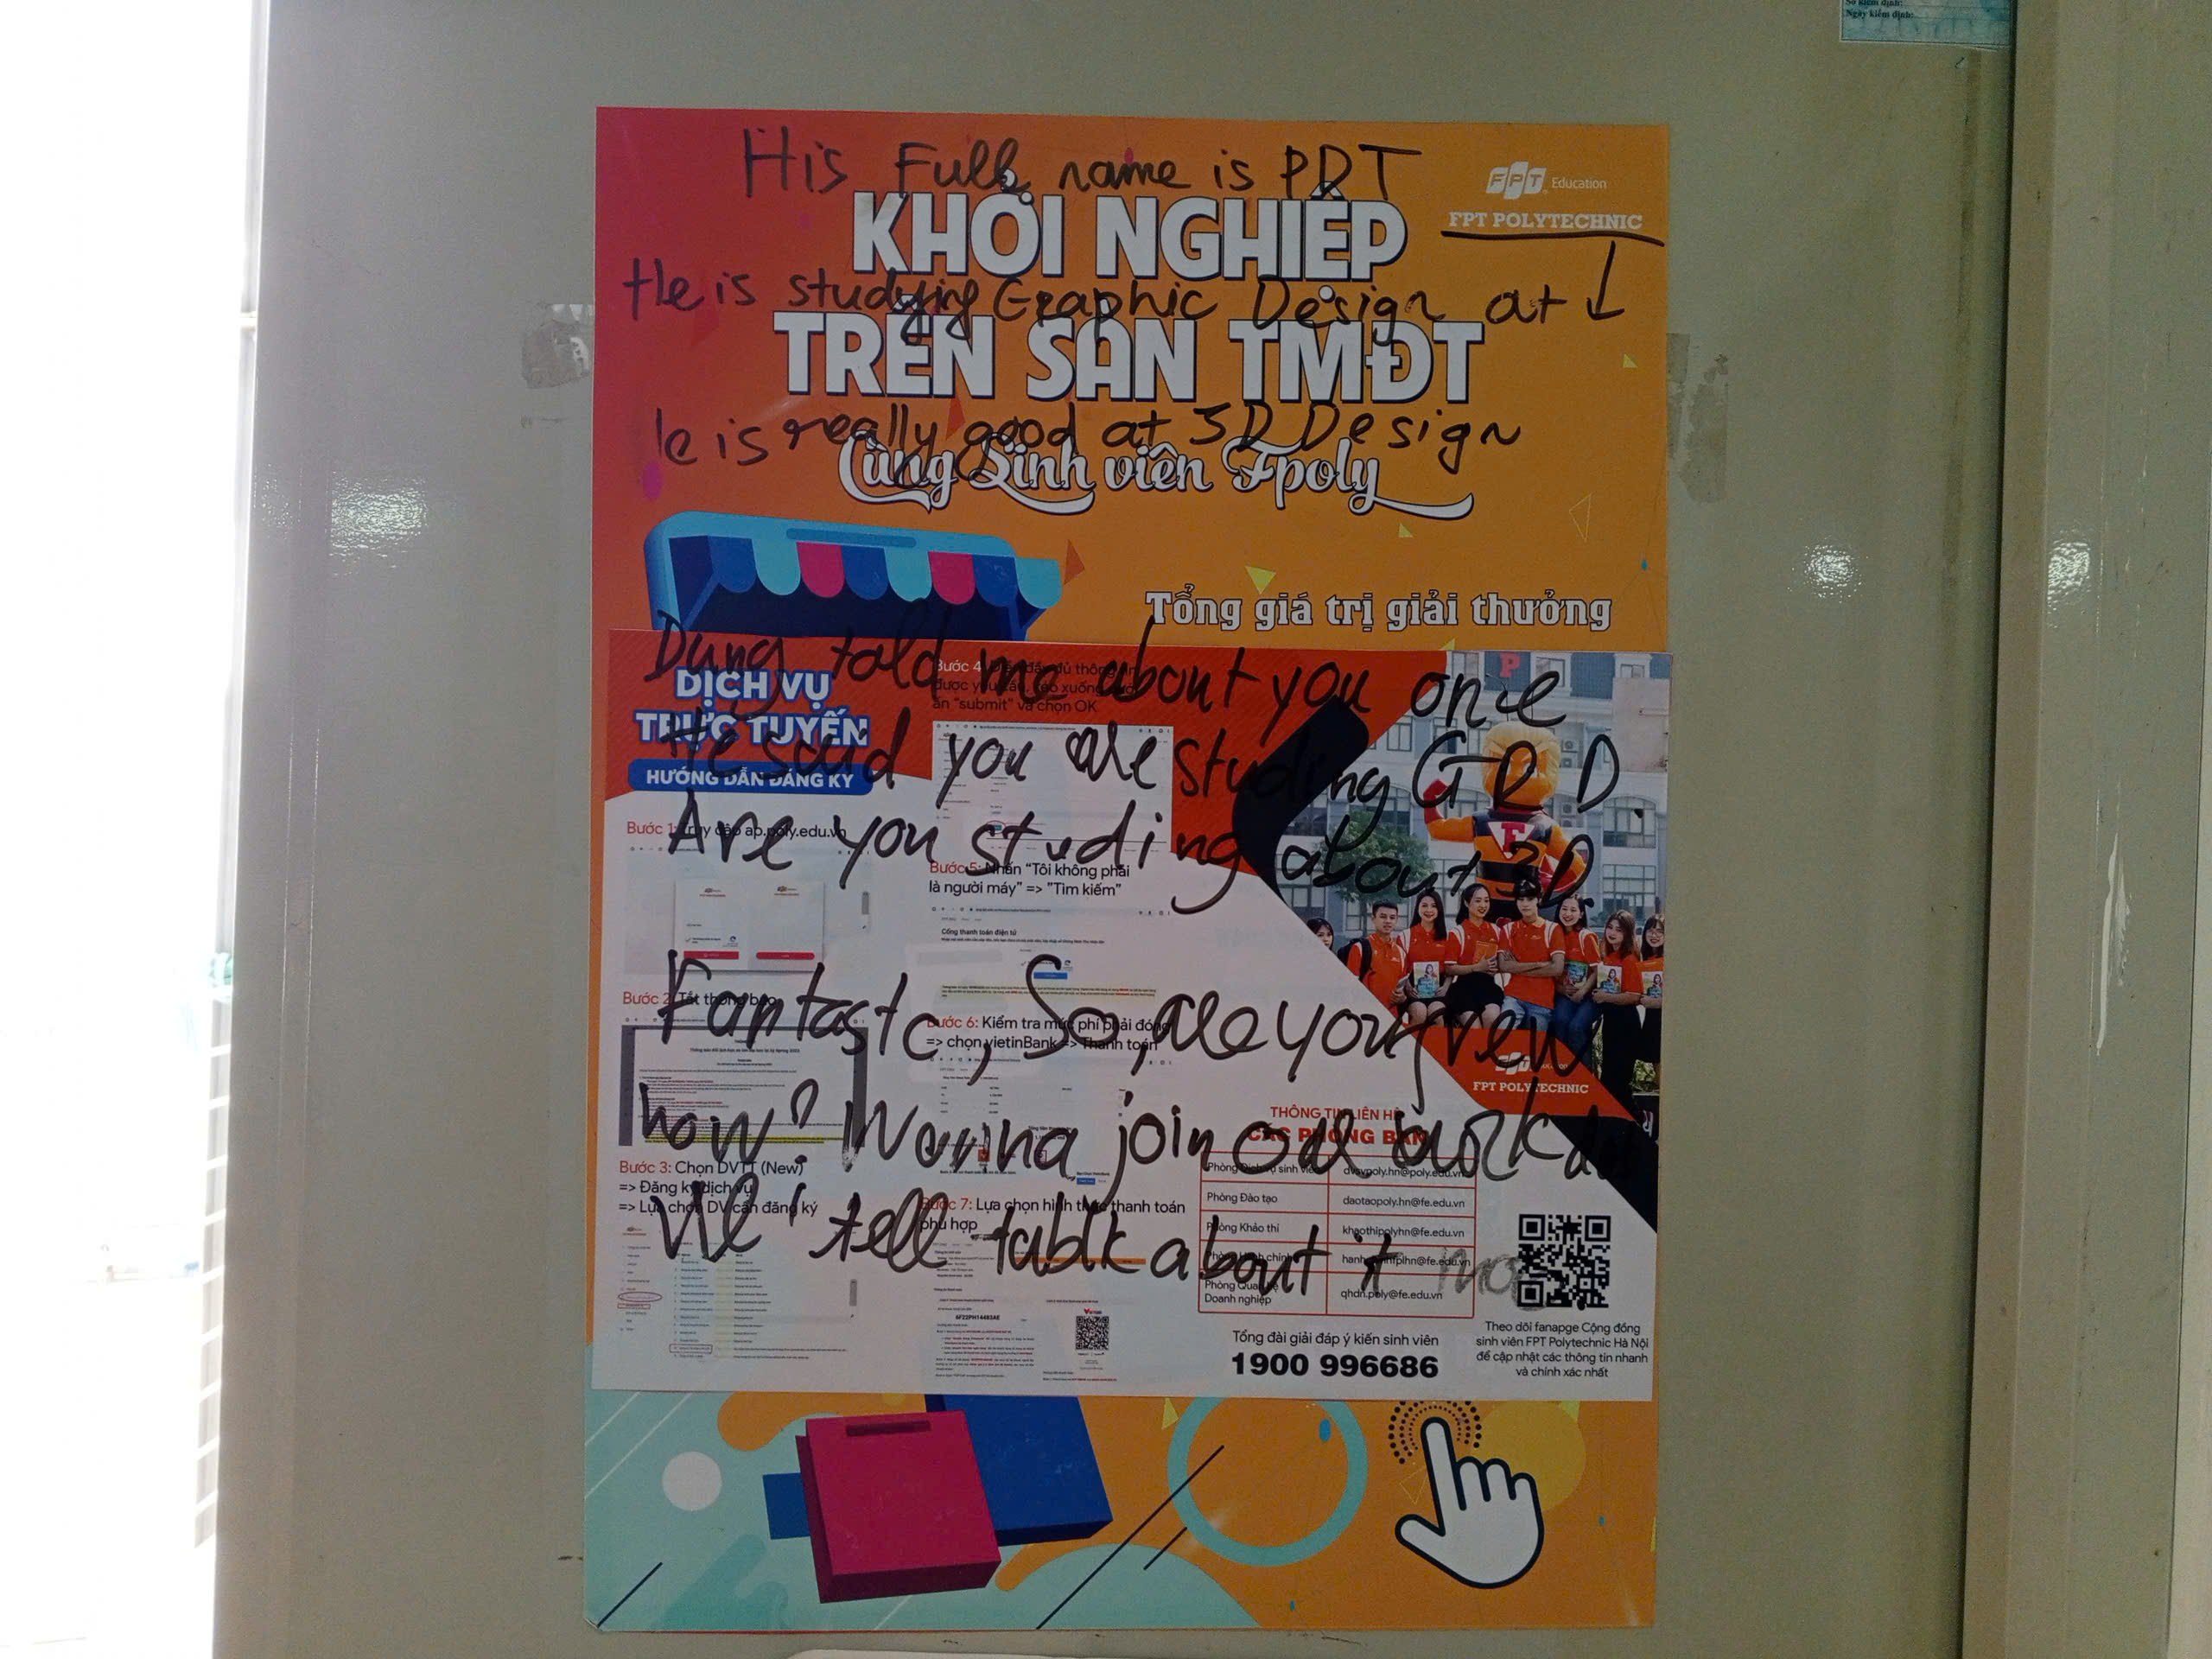 Số kiểm định:
Ngày kiểm định:
His Full name is PDT
FPT Education
FPT POLYTECHNIC
KHỞI NGHIỆP
He is studying Graphic Design at ↓
TRÊN SÀN TMĐT
le is really good at 3D Design
Cùng Sinh viên Fpoly
Tổng giá trị giải thưởng
Dung told me about you once
He said you are studing GRD
Are you studing about 3D
Fantastc, So, are you
how? Wanna join our
We' tell talk about it mo
DỊCH VỤ
TRỰC TUYẾN
HƯỚNG DẪN ĐĂNG KÝ
Bước 1: Truy cập ap.poly.edu.vn
Bước 2: Tắt thông báo
Bước 3: Chọn DVTT (New)
=> Đăng ký dịch vụ
=> Lựa chọn DV cần đăng ký
Bước 4: Điền đầy đủ thông tin
được yêu cầu, kéo xuống
ấn "submit" và chọn OK
Bước 5: Nhấn "Tôi không phải
là người máy" => "Tìm kiếm"
Cổng thanh toán điện tử
Bước 6: Kiểm tra mức phí phải đóng
=> chọn vietinBank => Thanh toán
Bước 7: Lựa chọn hình thức thanh toán
phù hợp
FPT POLYTECHNIC
THÔNG TIN LIÊN HỆ
CÁC PHÒNG BAN
Phòng Dịch vụ sinh viên dvsvpoly.hn@poly.edu.vn
Phòng Đào tạo daotaopoly.hn@fe.edu.vn
Phòng Khảo thí khaothipolyhn@fe.edu.vn
Phòng Hành chính
Phòng Quan hệ
Doanh nghiệp qhdn.poly@fe.edu.vn
Tổng đài giải đáp ý kiến sinh viên
1900 996686
Theo dõi fanapge Cộng đồng
sinh viên FPT Polytechnic Hà Nội
để cập nhật các thông tin nhanh
và chính xác nhất